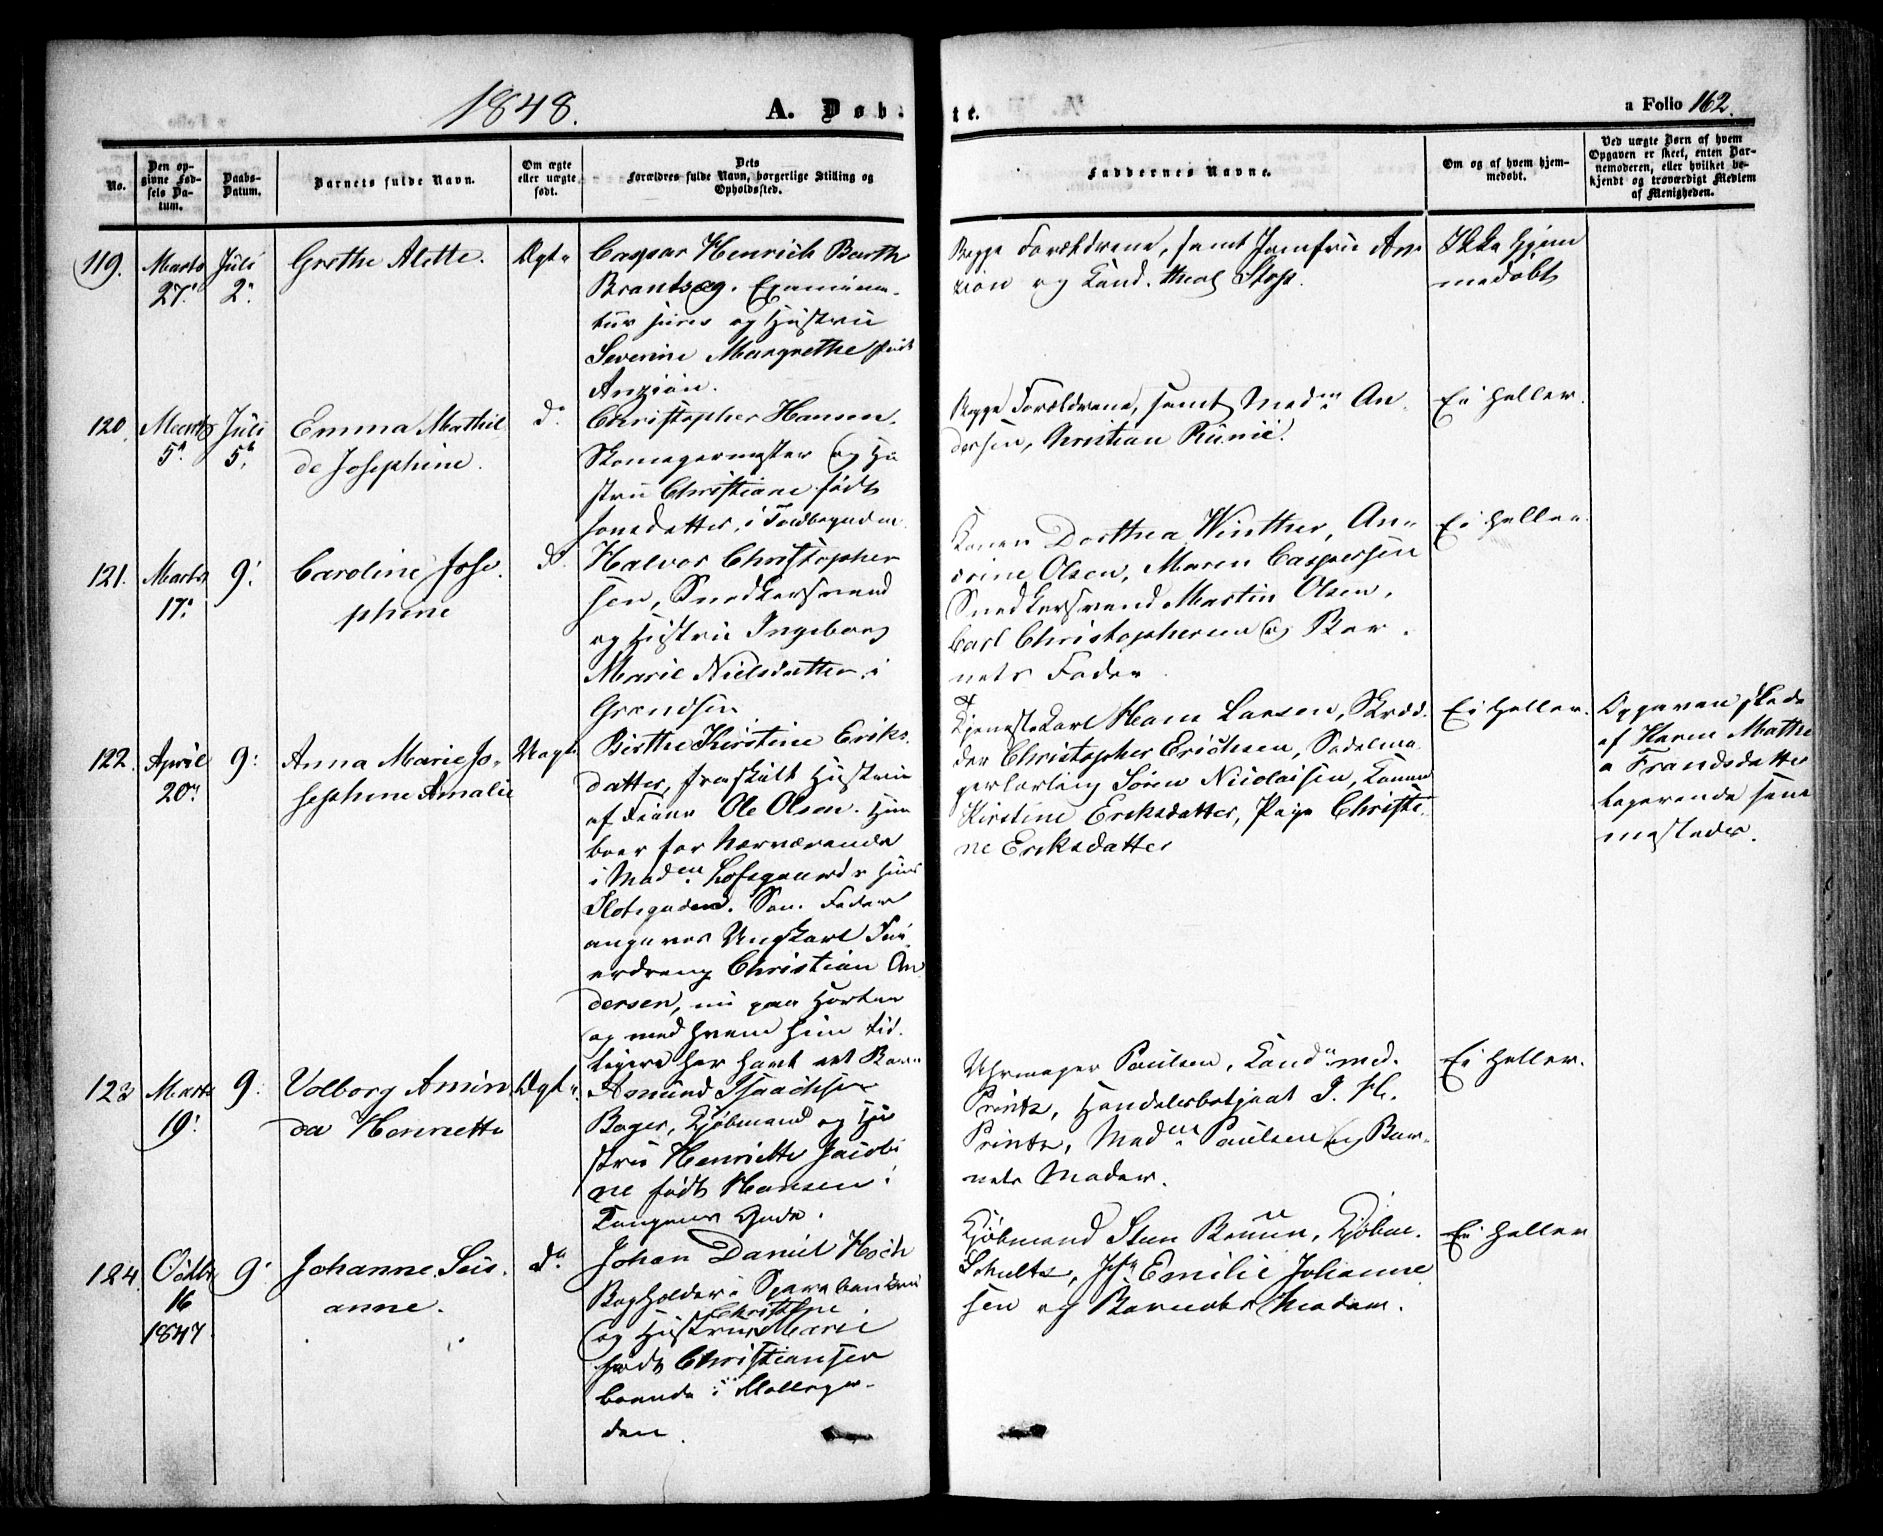 1848.
A. Døb-
te.
a Folio 162.
No.
Den op-
givne Fød-
sels Da-
tum.
Daabs-
Datum.
Barnets fulde Navn.
Om ægte
eller uægte
født.
Dets
Forældres fulde Navn, borgerlige Stilling og
Opholdssted.
Faddernes Navne.
Om og af hvem hjem-
medøbt.
Ved uægte Børn af hvem
Opgaven er skeet, enten Bar-
nemoderen, eller hvilket be-
kjendt og troværdigt Medlem
af Menigheden.
119.
Marts
27.
Juli
2.
Grethe Alette.
Ægte
Caspar Henrich Barth
Brantsæg. Examina-
tus juris og Hustrue
Severine Margrethe født
Anzion.
Begge Forældrene, samt Jomfrue An-
zion og Cand. theol
Ikke Hjem
medøbt
120.
Marts
5.
Juli
5.
Emma Mathil
de Josephine.
do
Christopher Hansen.
Skomagermester og Hu
strue Christiane født
Jonsdatter, i Toldbogaden
Begge Forældrene, samt Madm An-
dersen, Christian
Ei heller.
121.
Marts
17.
9.
Caroline Jose-
phine
do
Halvor Christopher
sen, Snedkersvend
og Hustrue Ingeborg
Marie Nielsdatter i
Grændsen
Konen Dorthea Winther, An-
drine Olsen, Maren Caspersen
Snedkersvend Martin Olsen,
Carl Christophersen og Bar-
nets Fader
Ei heller.
122.
April
20.
9.
Anna Marie Jo-
sephine Amalie
Uægte
Birthe Kirstine Eriks-
datter, fraskilt Hustrue
af Ole Olsen. Hun
boer for Nærværende
i Madm Lofsgaards Huus
Slotsgaden. Som Fader
angaves Ungkarl
Christian An
dersen, nu paa Horten
og med hvem hun tid-
ligere har havt et Barn
Tjenestekarl Hans Larsen, Skræd-
der Christopher Erichsen, Sadelma-
gerlærling Søren Nicolaisen, Konen
Kirstine Eriksdatter, Pige Christi-
ne Eriksdatter
Ei Heller.
Opgaven skede
af Karen Mathe
a Frandsdatter
logerende samme
steder.
123
Marts
19.
9.
Volborg Amin
da Henriette
Ægte
Asmund Isaachsen
Bager, Kjøbmand og Hu
strue Henriette Jacobi
ne født Hansen i
Tangens Gade.
Uhrmager Paulsen, Cand. med.
Printz, Handelsbetjent J. H.
Printz, Madm Paulsen og Bar-
nets Moder.
Ei Heller.
124.
Octbr
16
1847
9.
Johanne Sus-
anne.
do
Johan Daniel Hoch
Bogholder i Sparebanken
Christine
og Hustrue Marie
født Christiansen
boende i Møllega-
den.
Kjøbmand Sten Bruun, Kjøbm.
Schultz, Jfr Emilie Johanne-
sen og Barnets Moder.
Ei Heller